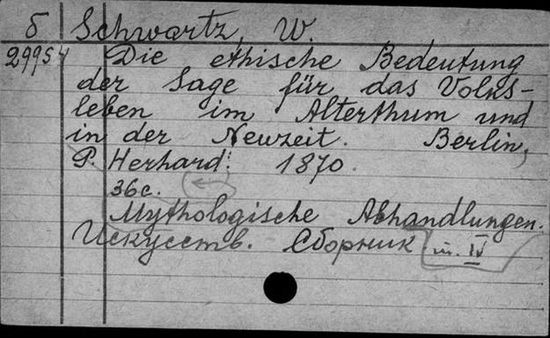 б Schwartz, W.
29954 Die ethische Bedeutung
der Sage für das Volks-
leben im Alterthum und
in der Neuzeit. Berlin,
P. Herhard: 1870.
36с.
Mythologische Abhandlungen.
Искусств. Сборник ш. IV